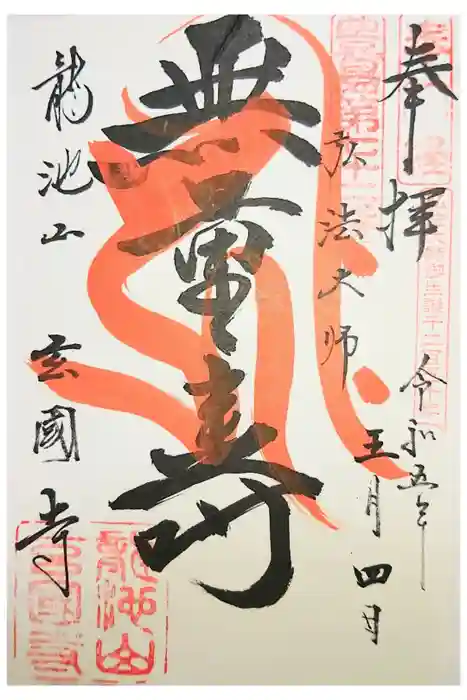 奉拝
令和五年
五月四日
弘法大师
無量寿
龍池山
玄國寺
龍池山
玄國寺